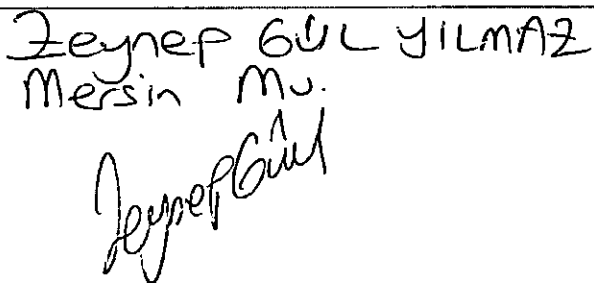 Zeynep GÜL YILMAZ
Mersin Mv.
ZeynepGül